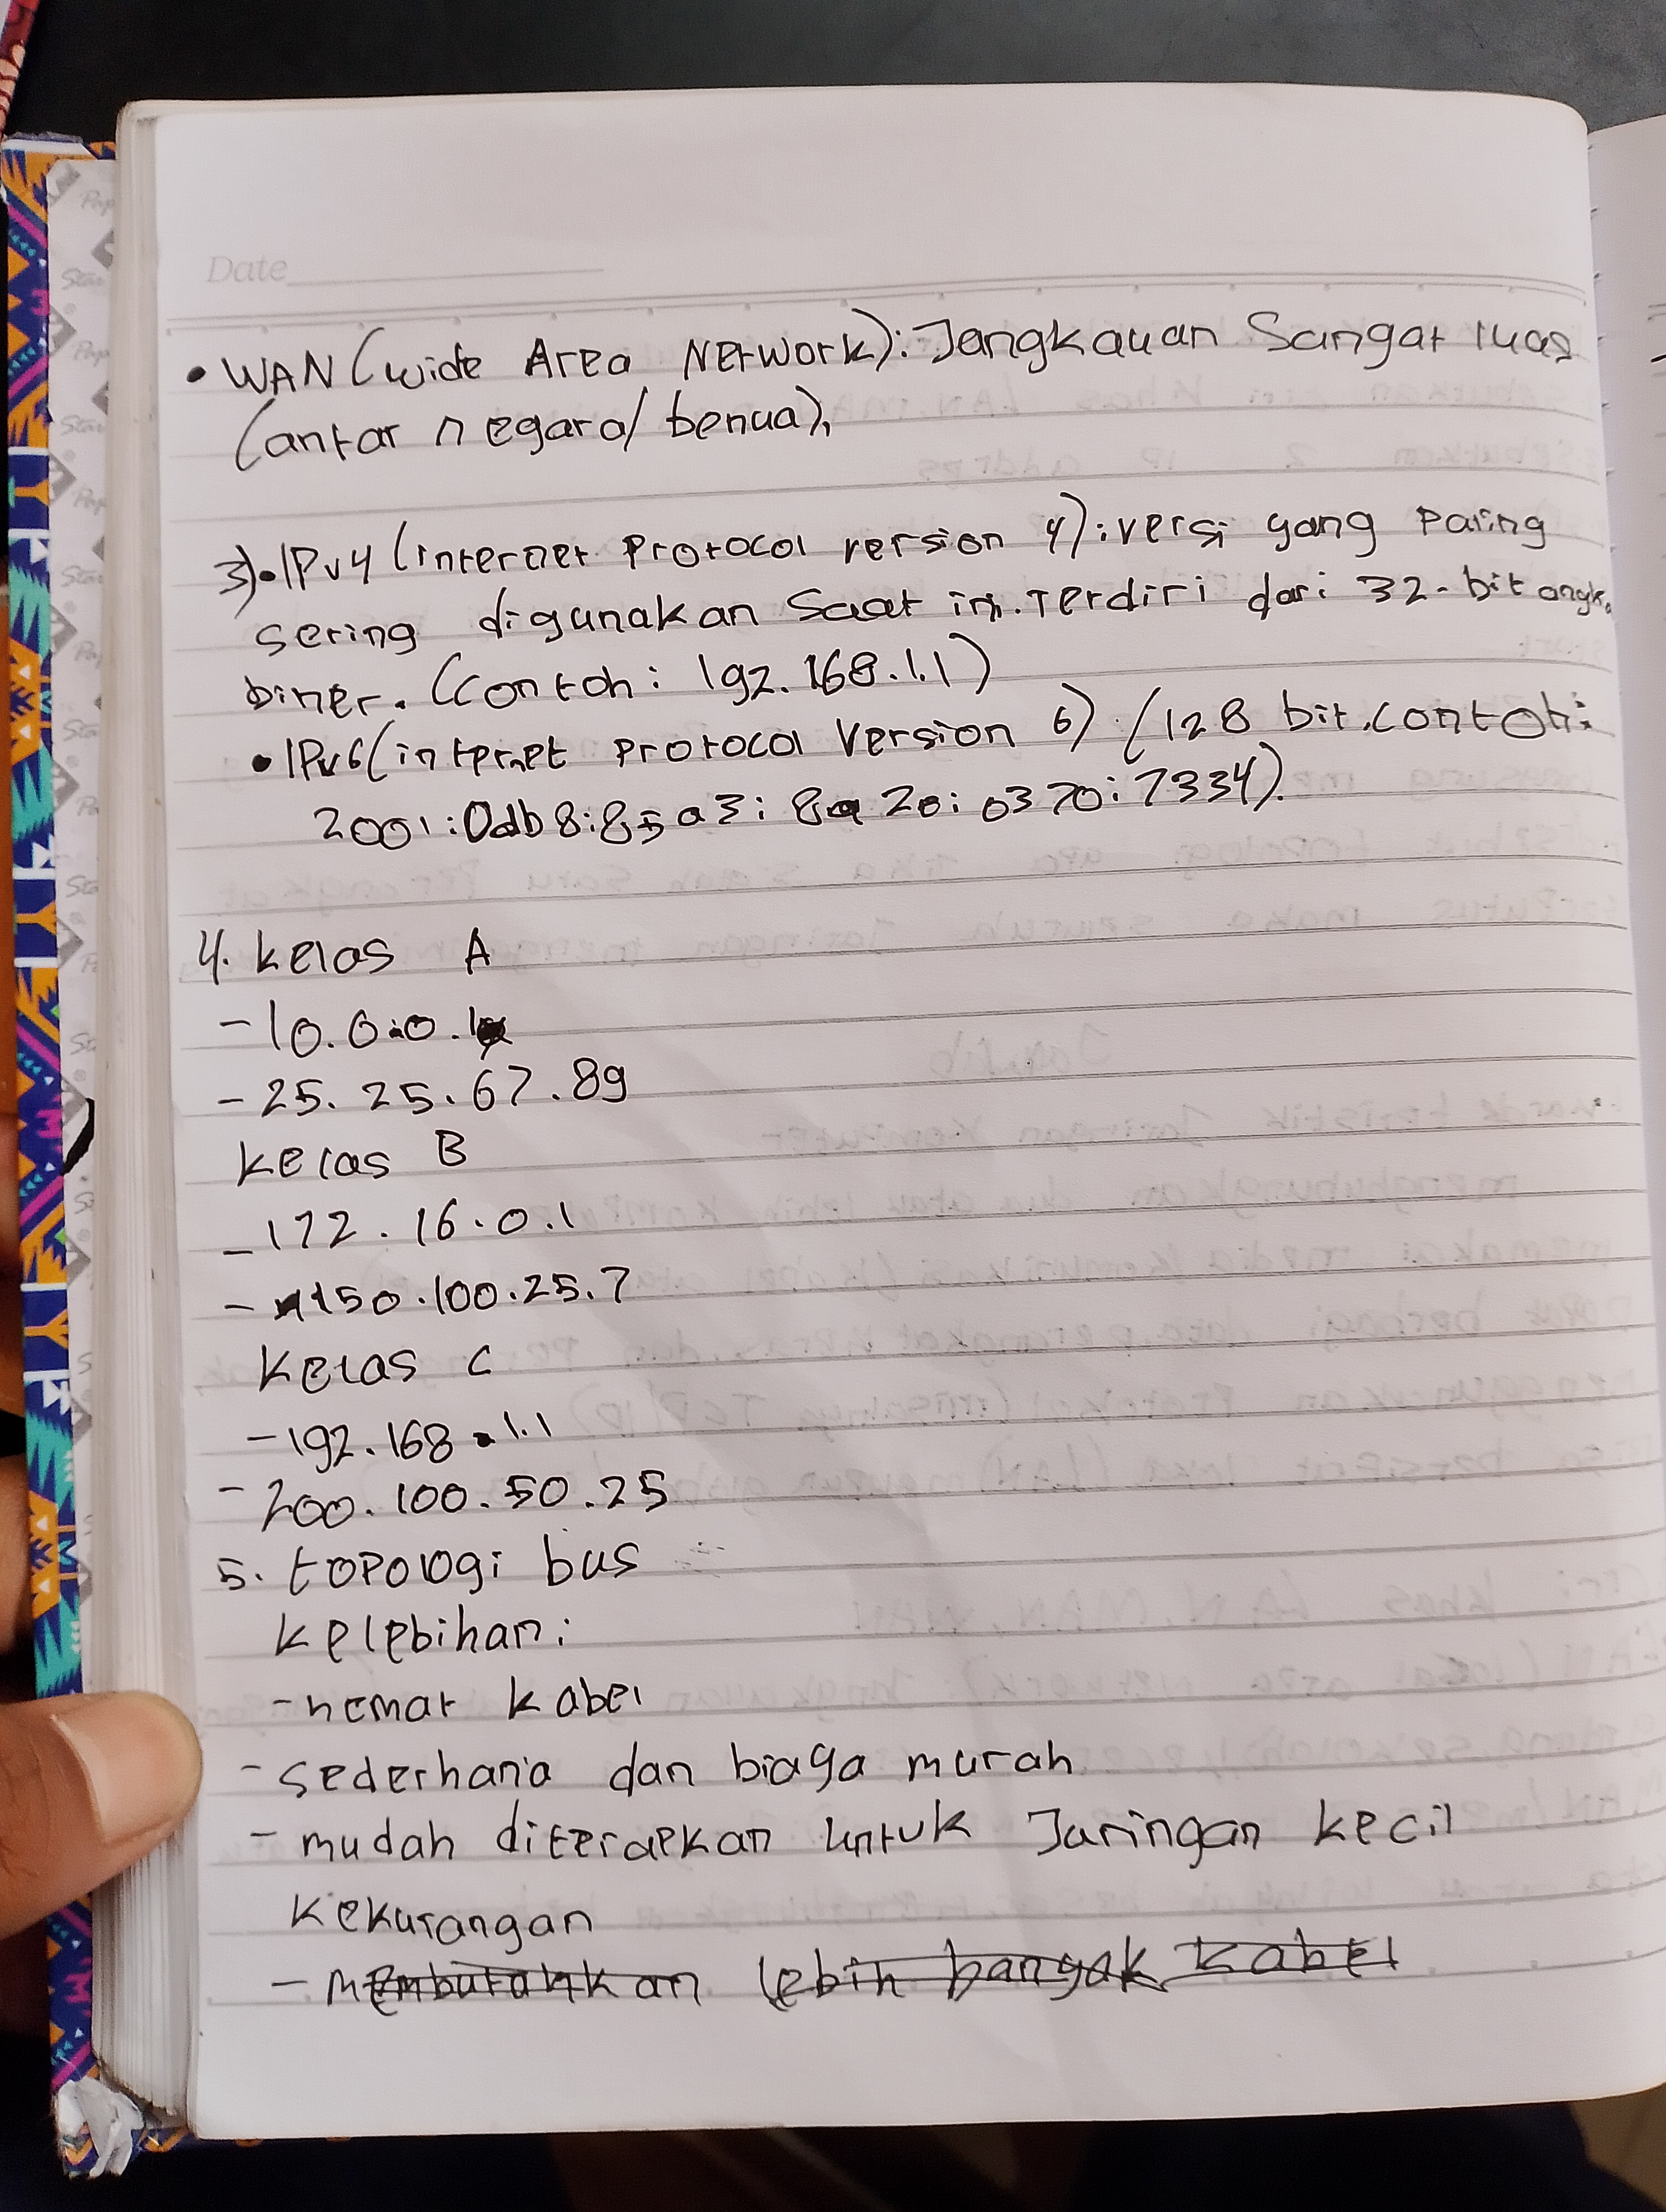 Date
• WAN (wide Area Network): Jangkauan Sangat luas
(antar negara/benua),
3). • IPv4 (internet Protocol version 4): versi yang Paling
sering digunakan Saat ini. Terdiri dari 32-bit angka
biner. (Contoh: 192.168.1.1)
• IPv6 (internet Protocol Version 6) (128 bit. contoh:
2001:0db8:85a3:8a2e:0370:7334).
4. kelas A
- 10.0.0.1
- 25.25.67.89
kelas B
- 172.16.0.1
- 150.100.25.7
Kelas C
- 192.168.1.1
- 200.100.50.25
5. topologi bus
kelebihan:
- hemat kabel
- sederhana dan biaya murah
- mudah diterapkan untuk Jaringan kecil
Kekurangan
- membutuhkan lebih banyak kabel